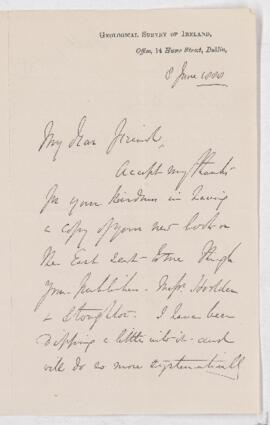 GEOLOGICAL SURVEY OF IRELAND,
Office, 14 Hume Street, Dublin,
8 June
My dear Friend,
Accept my thanks
for your kindness in having
a copy of your new book on
the East sent to me through
your publishers Messrs Hodder
& Stoughton. I have been
dipping a little into it and
will do so more systematically